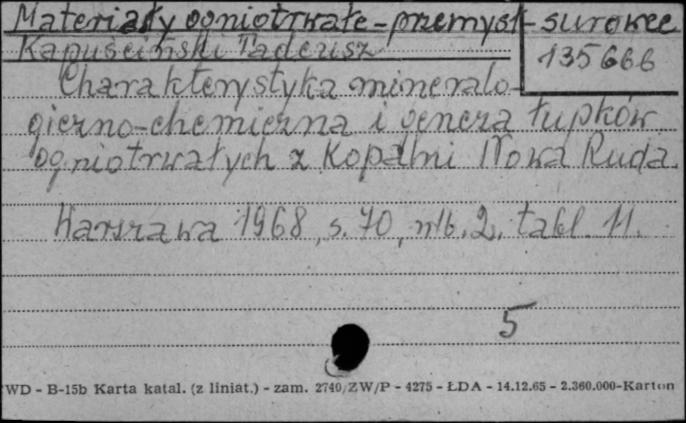 Materiały ogniotrwałe - przemysł - surowce
Kapuściński Tadeusz
135666
Charakterystyka mineralo-
giczno-chemiczna i geneza łupków
ogniotrwałych z Kopalni Nowa Ruda.
Warszawa 1968, s. 70, nlb. 2, tabl. 11.
5
WD - B-15b Karta katal. (z liniat.) - zam. 2740/ZW/P - 4275 - ŁDA - 14.12.65 - 2.360.000-Karton